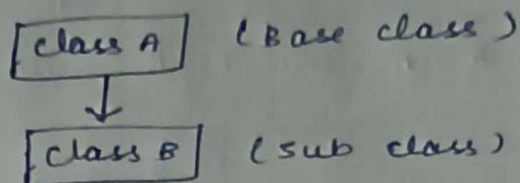 class A (Base class)
class B (sub class)